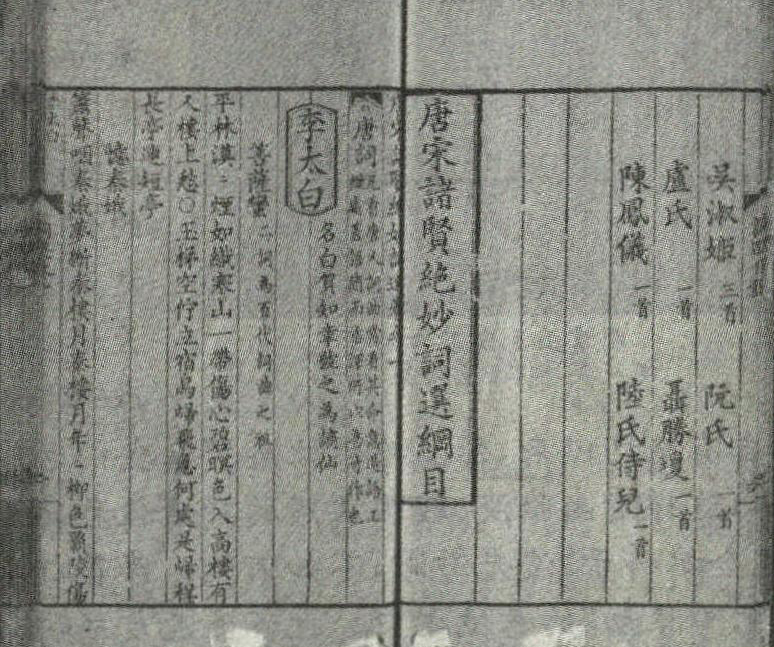 吳淑姬 三首 阮氏 一首
盧氏 一首 聶勝瓊 一首
陳鳳儀 一首 陸氏侍兒 一首
唐宋諸賢絕妙詞選綱目
唐詞
李太白
名白賀知章號之為謫仙
菩薩蠻 二詞為百代詞曲之祖
平林漠〻煙如織寒山一帶傷心碧暝色入高樓有
人樓上愁○玉梯空佇立宿鳥歸飛急何處是歸程
長亭連短亭
憶秦娥
簫聲咽秦娥夢斷秦樓月秦樓月年〻柳色灞陵傷